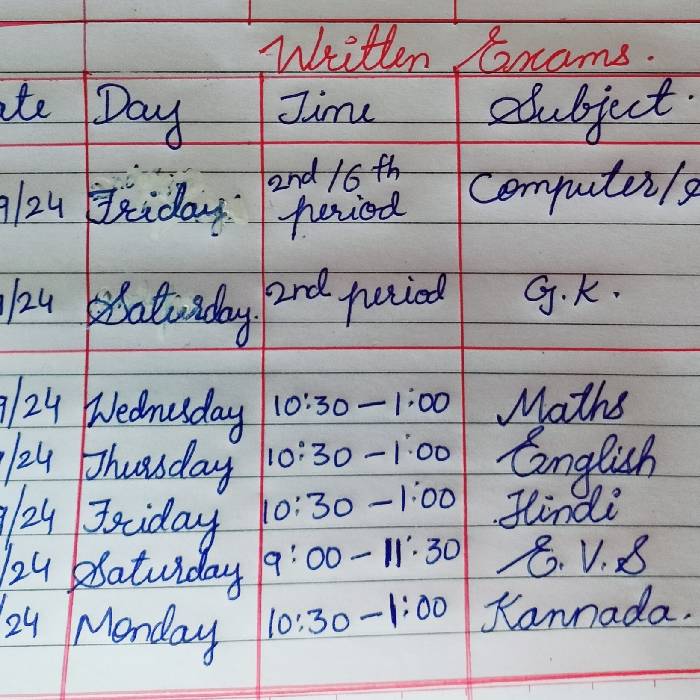 Written Exams.
Day Time Subject.
9/24 Friday. 2nd/6th period Computer/
/24 Saturday. 2nd period G.K.
9/24 Wednesday 10:30-1:00 Maths
/24 Thursday 10:30-1:00 English
9/24 Friday 10:30-1:00 Hindi
/24 Saturday 9:00-11:30 E.V.S
/24 Monday 10:30-1:00 Kannada.